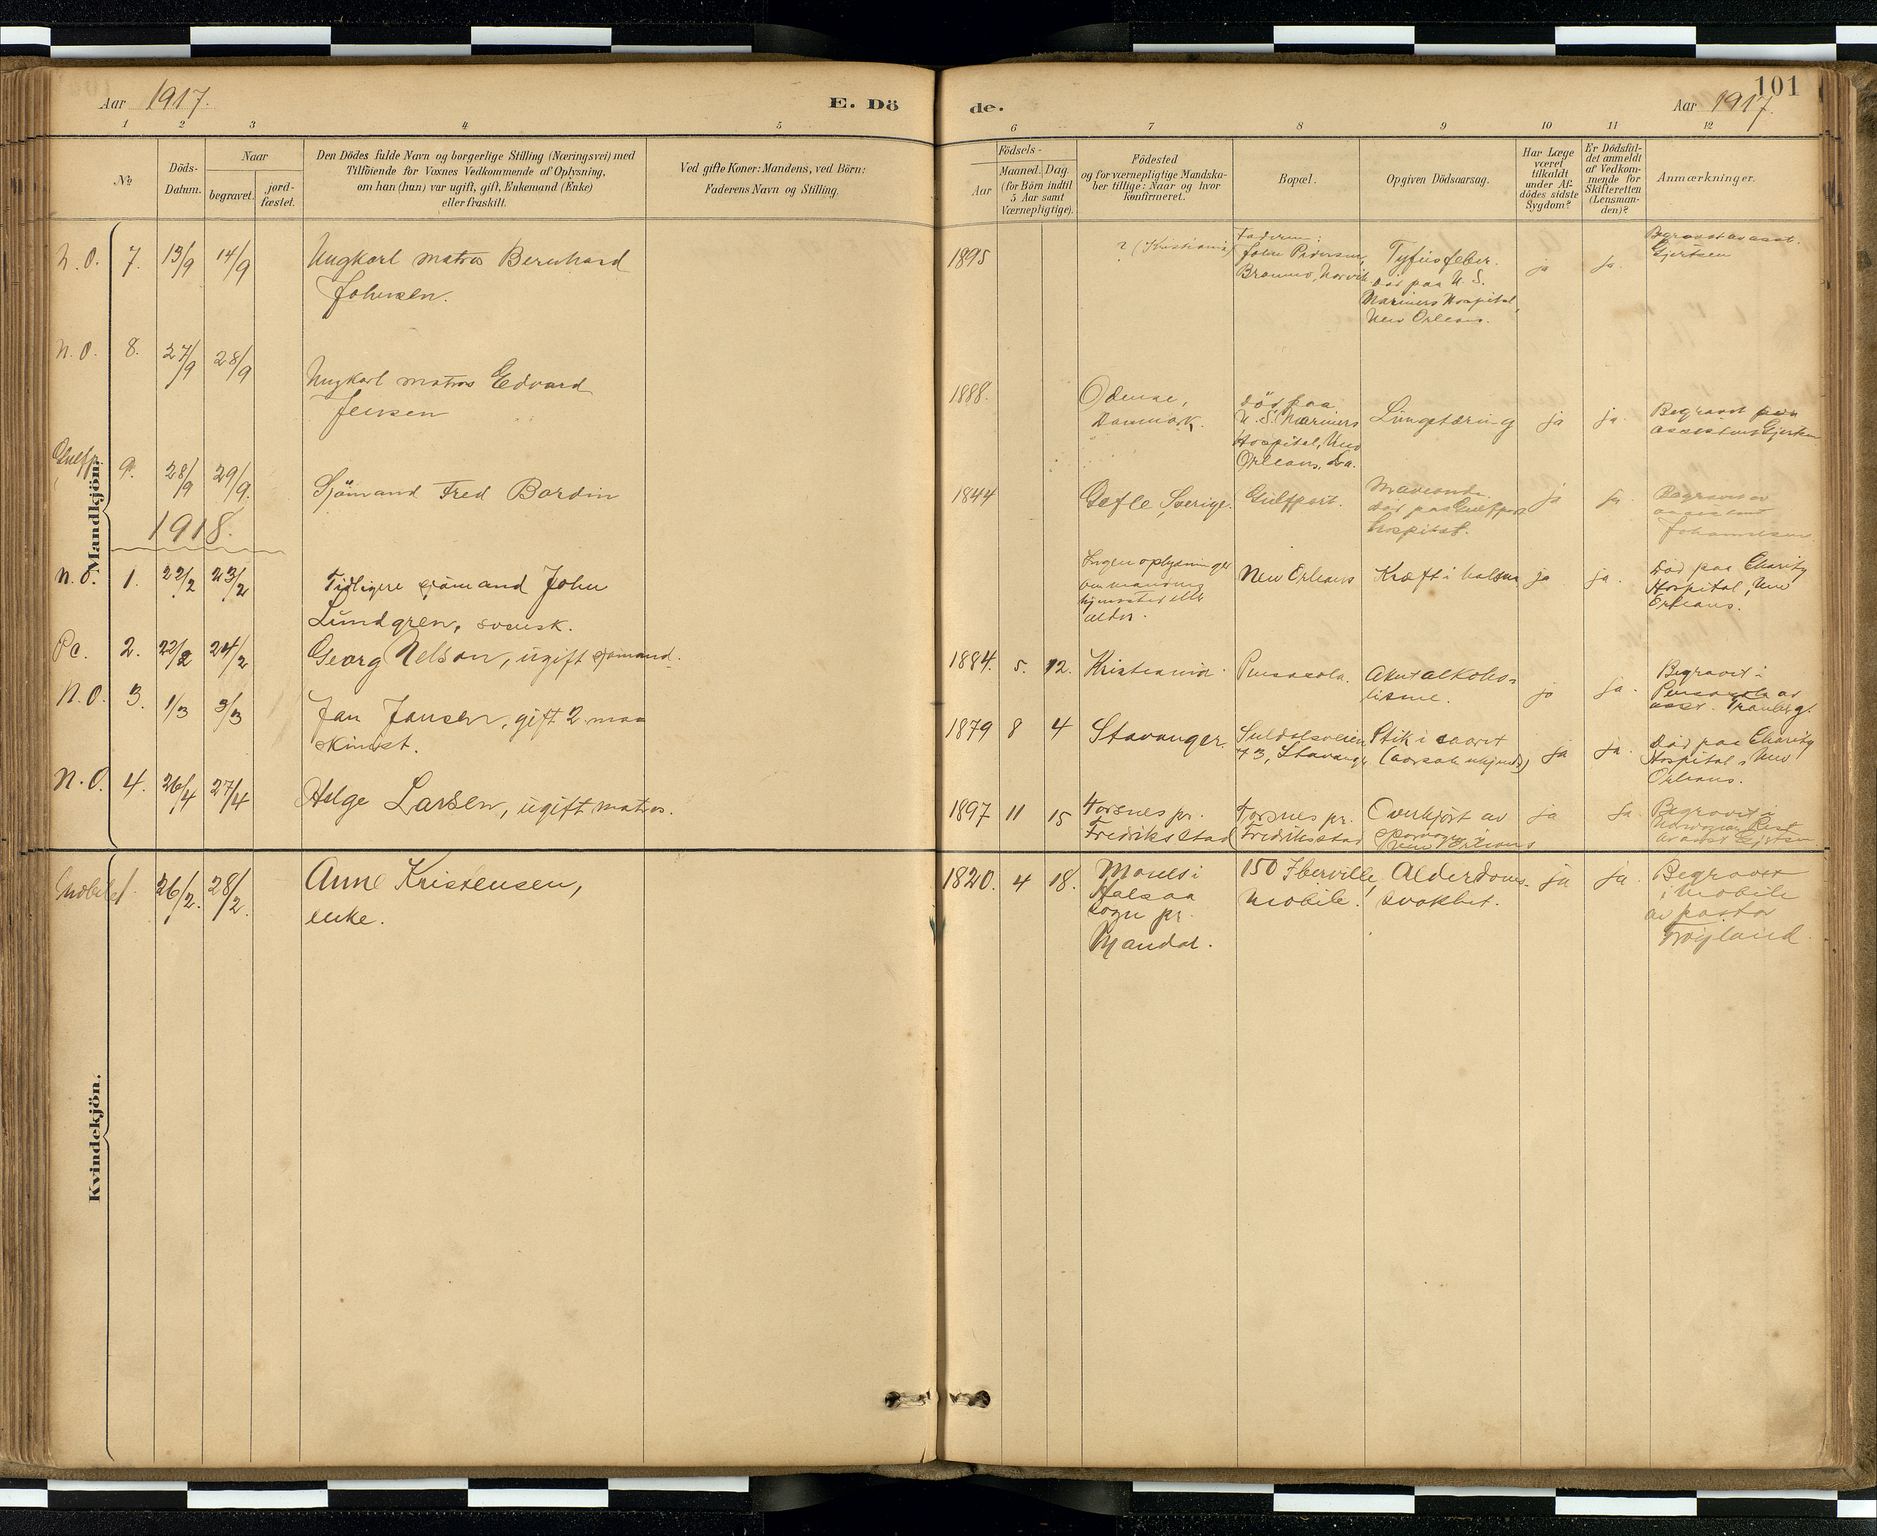 Aar 1917.
E. Dö
de.
101
Aar 1917.
1 2 3 4 5 6 7 8 9 10 11 12
No
Döds-
Datum.
Naar
begravet.
jord-
fæstet.
Den Dödes fulde Navn og borgerlige Stilling (Næringsvei) med
Tilföiende for Voxnes Vedkommende af Oplysning,
om han (hun) var ugift, gift, Enkemand (Enke)
eller fraskilt.
Ved gifte Koner: Mandens, ved Börn:
Faderens Navn og Stilling.
Födsels-
Aar
Maaned. Dag
(for Börn indtil
5 Aar samt
Værnepligtige).
Födested
og for værnepligtige Mandska-
ber tillige: Naar og hvor
konfirmeret.
Bopæl.
Opgiven Dödsaarsag.
Har Læge
været
tilkaldt
under Af-
dödes sidste
Sygdom?
Er Dödsfal-
det anmeldt
af Vedkom-
mende for
Skifteretten
(Lensman-
den)?
Anmærkninger.
Mandkjön.
N.O. 7. 13/9 14/9
Ungkarl matros Bernhard
Johnsen.
1895
? (Kristiania)
Faderen:
John Pedersen,
Tyfusfeber.
Død paa U. S.
Mariners Hospital,
New Orleans.
ja
ja.
Begravet av asst.
Gjertsen
N.O. 8. 27/9 28/9
Ungkarl matros Edvard
Jensen
1888.
Odense,
Danmark.
Død paa
U. S. Mariners
Hospital, New
Orleans, La.
Lungetæring
ja
ja.
Begravet
assistent Gjertsen
Gulfp. 9. 28/9 29/9.
Sjömand Fred Bordin
1844
Gefle, Sverige.
Gulfport.
Mavesonde.
Død paa Gulfport
hospital.
ja
ja.
Begravet av
assistent
Johannesen.
1918.
N.O. 1. 22/2 23/2
Tidligere sjömand John
Lundgren, svensk.
Ingen oplysninger
om mandens
hjemsted eller
alder.
New Orleans
Kræft i halsen
ja
ja.
Død paa Charity
Hospital, New
Orleans.
Pc. 2. 22/2 24/2
Georg Nelson, ugift sjömand.
1884. 5. 12.
Kristiania.
Pensacola.
Akut alkoho-
lisme.
ja
ja.
Begravet i
Pensacola av
asst. Tranberg.
N.O. 3. 1/3 3/3
Jan Jansen, gift 2 mas
kinist.
1879 8 4
Stavanger.
Suldalsveien
43, Stavanger
Stik i saaret
(aarsak ukjendt)
ja
ja.
Død paa Charity
Hospital, New
Orleans.
N.O. 4. 26/4 27/4
Helge Larsen, ugift matros.
1897 11 15
Torsnes pr.
Fredriksstad
Torsnes pr.
Fredriksstad
Overkjört av
sporvogn i
New Orleans
ja
ja.
Begravet i
av asst. Gjertsen
Kvindekjön.
Mobile 1. 26/2. 28/2.
Anne Kristensen,
enke.
1820. 4 18.
i
Halsaa
sogn pr.
Mandal.
150 Iberville
Mobile.
Alderdoms-
svakhet.
ja
ja.
Begravet
i Mobile
av pastor